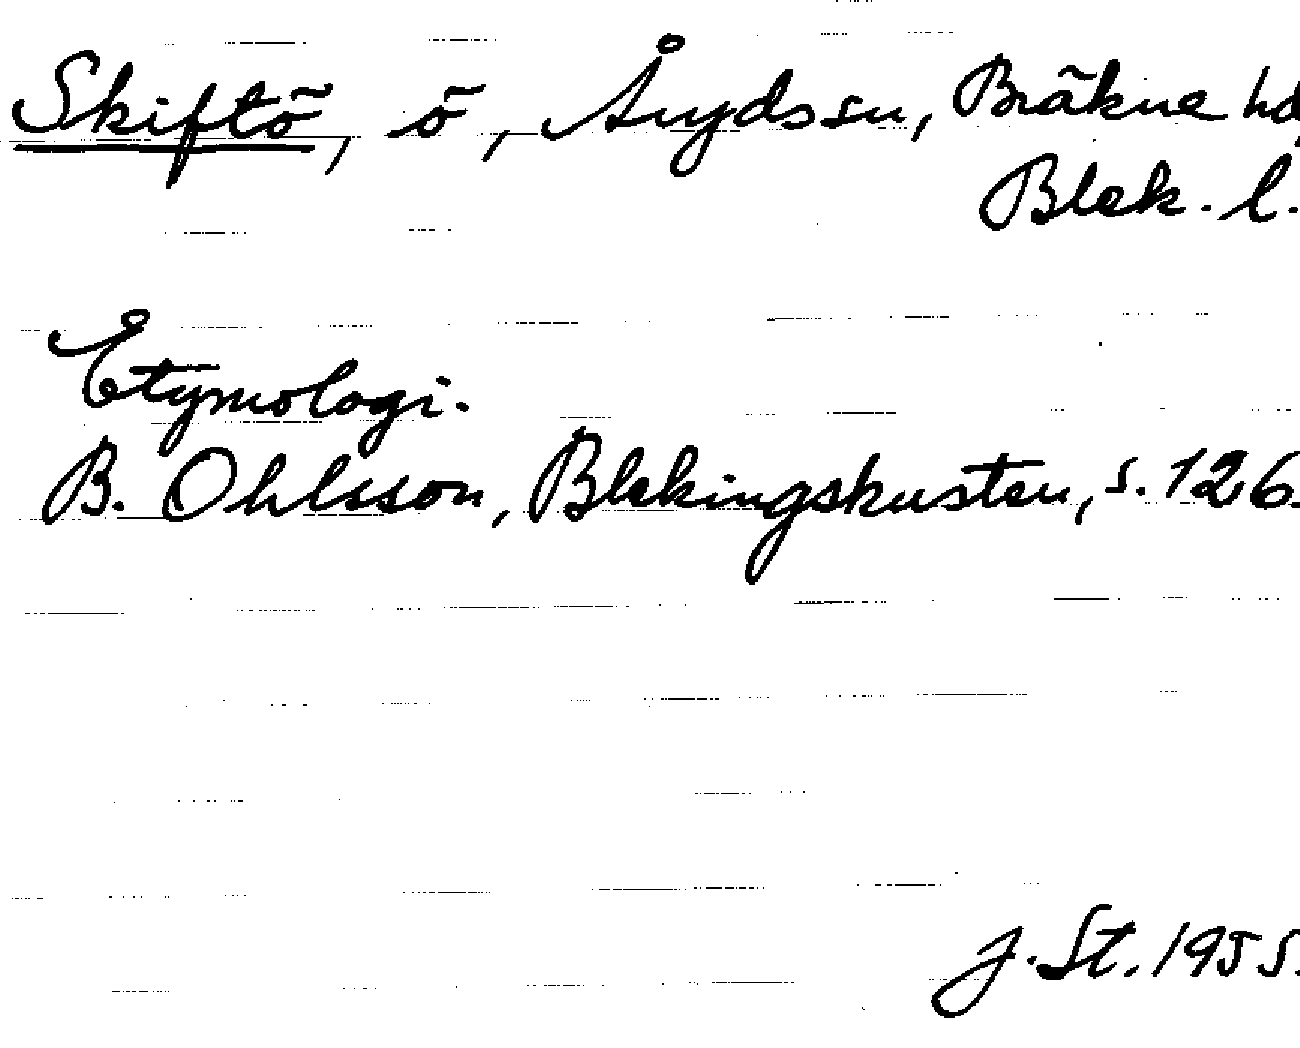 Skiftö, ö, Åryds sn, Bräkne hd,
Blek. l.
Etymologi.
B. Ohlsson, Blekingskusten, s. 126.
J. St. 1955.